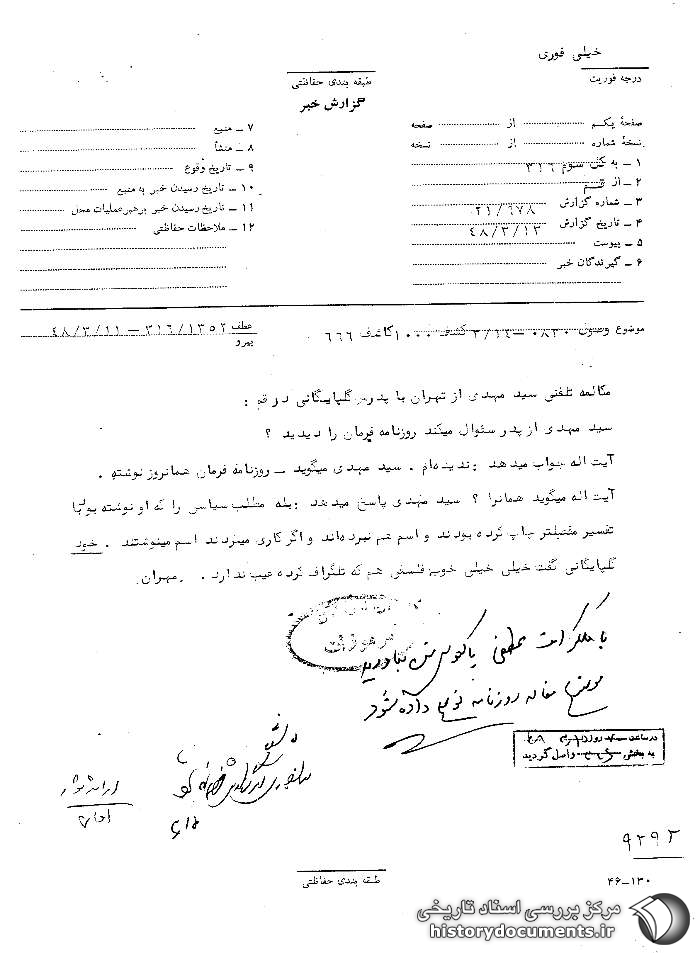 خیلی فوری
درجه فوریت
طبقه بندی حفاظتی
گزارش خبر
صفحهٔ یکم از صفحه
نسخهٔ شماره از نسخه
۱ – به کل سوم ۳۱۶
۲ – از قم
۳ – شماره گزارش ۲۱/۶۷۸
۴ – تاریخ گزارش ۴۸/۳/۱۳
۵ – پیوست
۶ – گیرندگان خبر
۷ – منبع
۸ – منشأ
۹ – تاریخ وقوع
۱۰ – تاریخ رسیدن خبر به منبع
۱۱ – تاریخ رسیدن خبر برهبر عملیات محل
۱۲ – ملاحظات حفاظتی
موضوع وصول ۰۸۳۰ – ۳/۱۴ کشف ۱۰۰۰ کاشف ۶۶۶
عطف ۳۱۶/۱۳۵۲ – ۴۸/۳/۱۱
پیرو
مکالمه تلفنی سید مهدی از تهران با پدرش گلپایگانی در قم :
سید مهدی از پدر سئوال میکند روزنامه فرمان را دیدید ؟
آیت اله جواب میدهد : ندیده‌ام . سید مهدی میگوید – روزنامه فرمان همانروز نوشته .
آیت اله میگوید همانرا ؟ سید مهدی پاسخ میدهد : بله مطلب سیاسی را که او نوشته بود با
تفسیر مفصلتر چاپ کرده بودند و اسم هم نبرده‌اند و اگر کاری میکردند اسم مینوشتند . خود
گلپایگانی گفت خیلی خیلی خوب فلسفی هم که تلگراف کرده عیب ندارد . مهران
موضوع مقاله روزنامه توضیح داده شود
در ساعت روز
به بخش ۳۱۶ واصل گردید
۹۲۹۲
طبقه بندی حفاظتی
۴۶–۱۳۰
مرکز بررسی اسناد تاریخی
historydocuments.ir